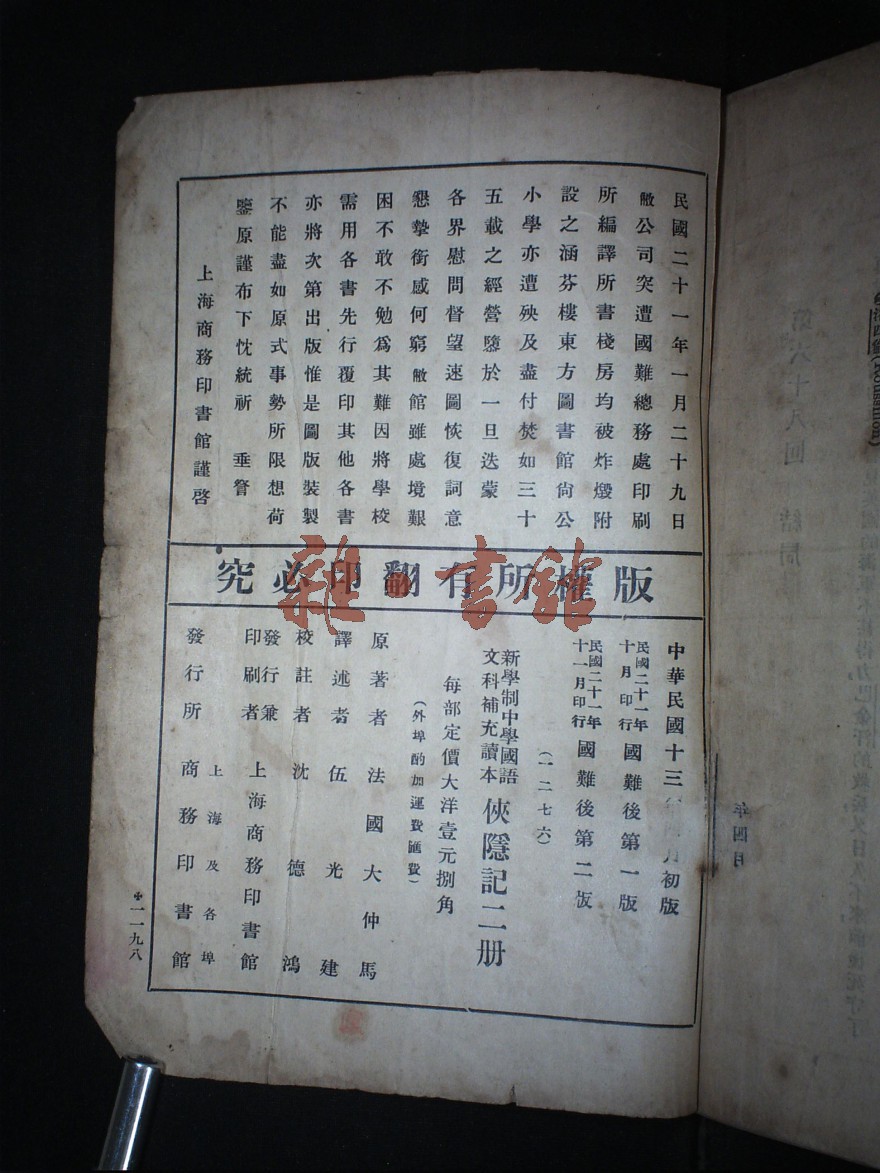 民國二十一年一月二十九日
敝公司突遭國難總務處印刷
所編譯所書棧房均被炸燬附
設之涵芬樓東方圖書館尙公
小學亦遭殃及盡付焚如三十
五載之經營隳於一旦迭蒙
各界慰問督望速圖恢復詞意
懇摯銜感何窮敝館雖處境艱
困不敢不勉爲其難因將學校
需用各書先行覆印其他各書
亦將次第出版惟是圖版裝製
不能盡如原式事勢所限想荷
鑒原謹布下忱統祈 垂詧
上海商務印書館謹啓
版權所有翻印必究
雜·書館
中華民國十三年四月初版
民國二十一年十月印行 國難後第一版
民國二十一年十一月印行 國難後第二版
(一二七六)
新學制中學國語文科補充讀本 俠隱記二册
每部定價大洋壹元捌角
(外埠酌加運費匯費)
原著者 法國大仲馬
譯述者 伍光建
校註者 沈德鴻
發行兼印刷者 上海商務印書館
發行所 上海及各埠 商務印書館
一一九八
第六十八回 結局
年四月